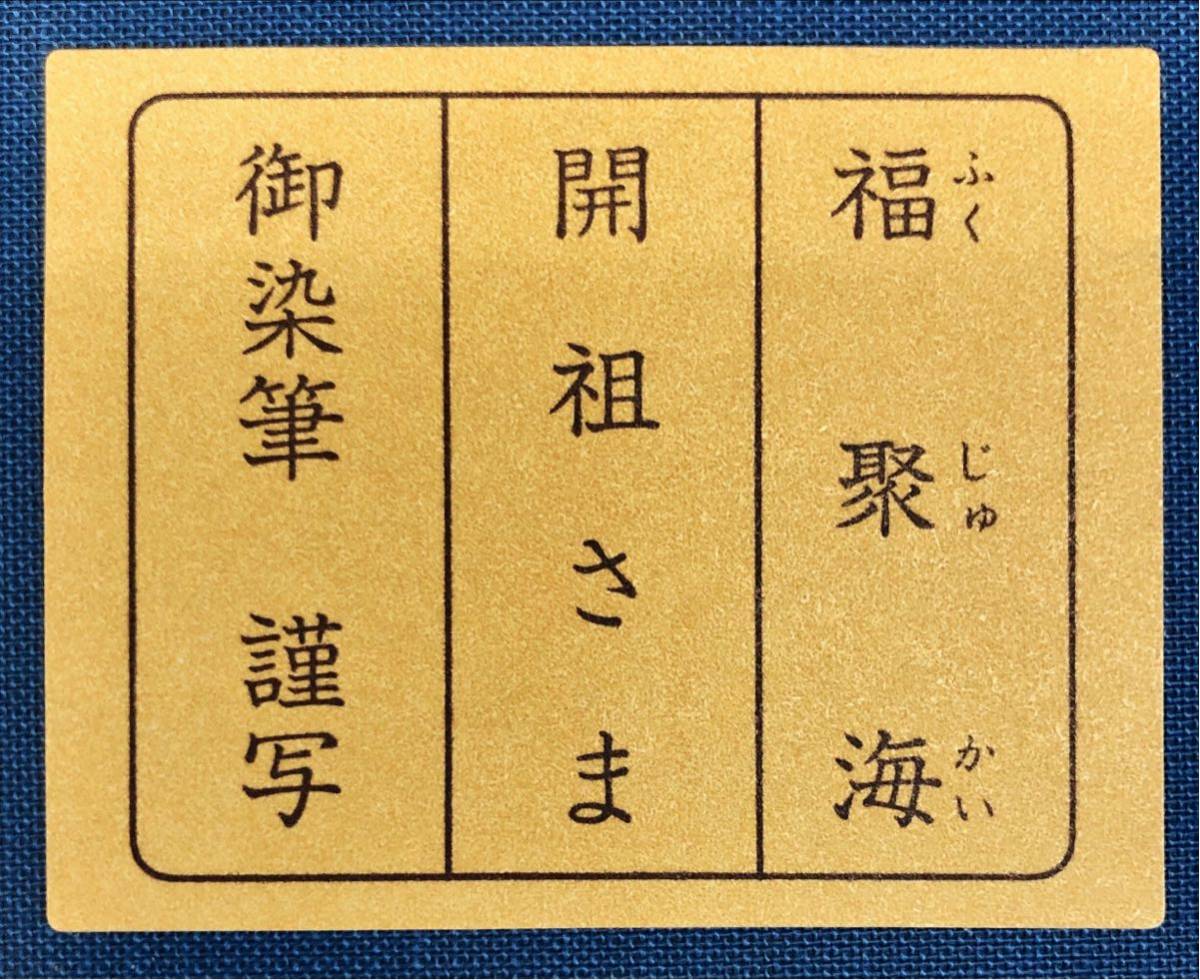 福聚海
ふくじゅかい
開祖さま
御染筆　謹写